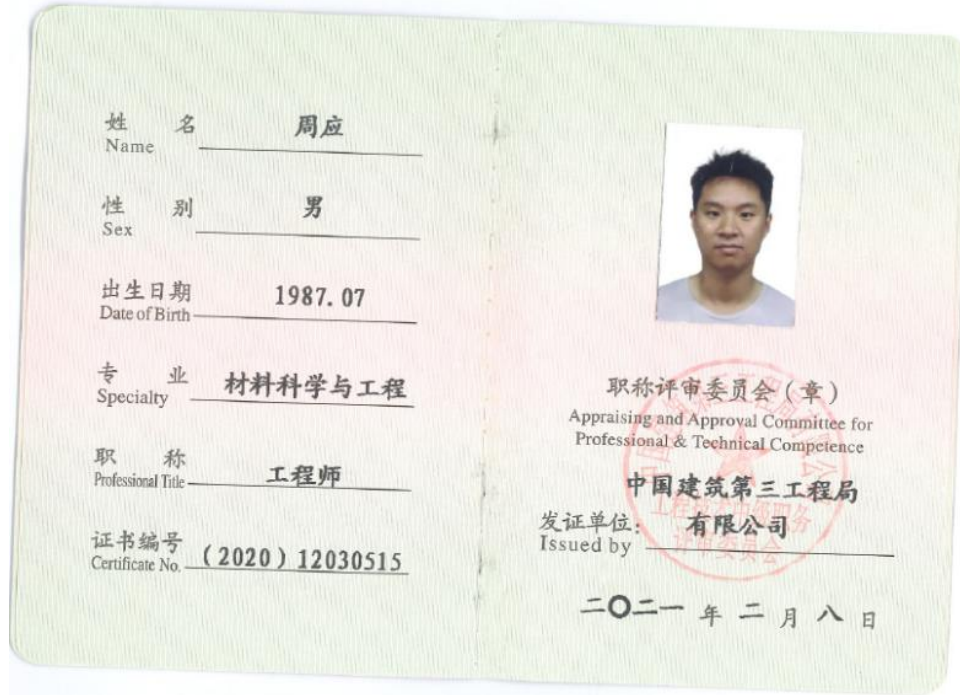 姓 名 周应
Name
性 别 男
Sex
出生日期 1987.07
Date of Birth
专 业 材料科学与工程
Specialty
职 称 工程师
Professional Title
证书编号 (2020) 12030515
Certificate No.
职称评审委员会(章)
Appraising and Approval Committee for
Professional & Technical Competence
中国建筑第三工程局
发证单位: 有限公司
Issued by
二〇二一 年 二 月 八 日
工程技术中级职务
评审委员会